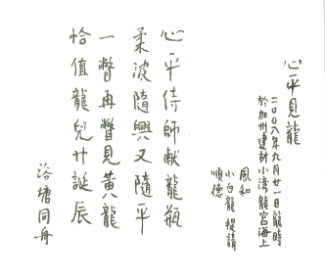 心平見龍
二〇〇八年九月廿一日龍時
於加州建林小湾龍宮海上
風和
小白龍 提請
順德
心平侍師獻龍瓶
柔波隨興又隨平
一瞥再瞥見黃龍
恰值龍兒廿誕辰
浴塘同舟